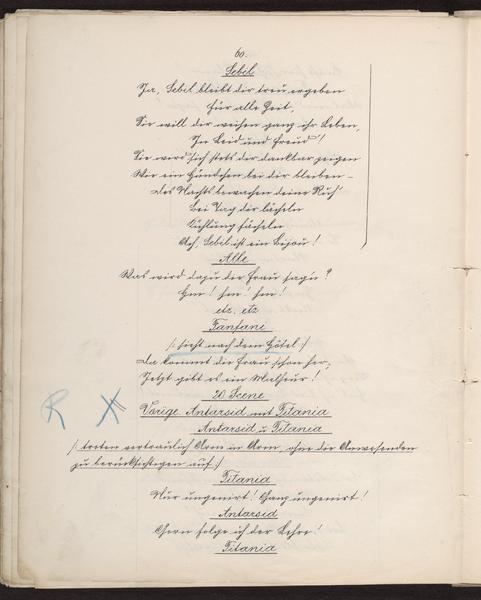 60.
Sebil
Ja, Sebil bleibt dir treu ergeben
Für alle Zeit,
Sie will dir weihen ganz ihr Leben,
In Leid und Freud'!
Sie wird sich stets dir dankbar zeigen
Wie ein Hündchen bei dir bleiben –
Des Nachts bewachen deine Ruh'
Bei Tag dir lächeln
Kühlung fächeln
Ach, Sebil ist ein Bijou!
Alle
Was wird dazu die Frau sagen?
Hm! hm! hm!
etz. etz
Fanfani
/: sieht nach dem Hôtel :/
Da kommt die Frau schon her,
Jetzt gibt es ein Malheur!
20. Scene
R X
Vorige Antarsid mit Titania
Antarsid u. Titania
/: treten vertraulich Arm in Arm, ohne die Anwesenden
zu berücksichtigen auf :/
Titania
Nur ungenirt! Ganz ungenirt!
Antarsid
Gern folge ich der Lehre!
Titania